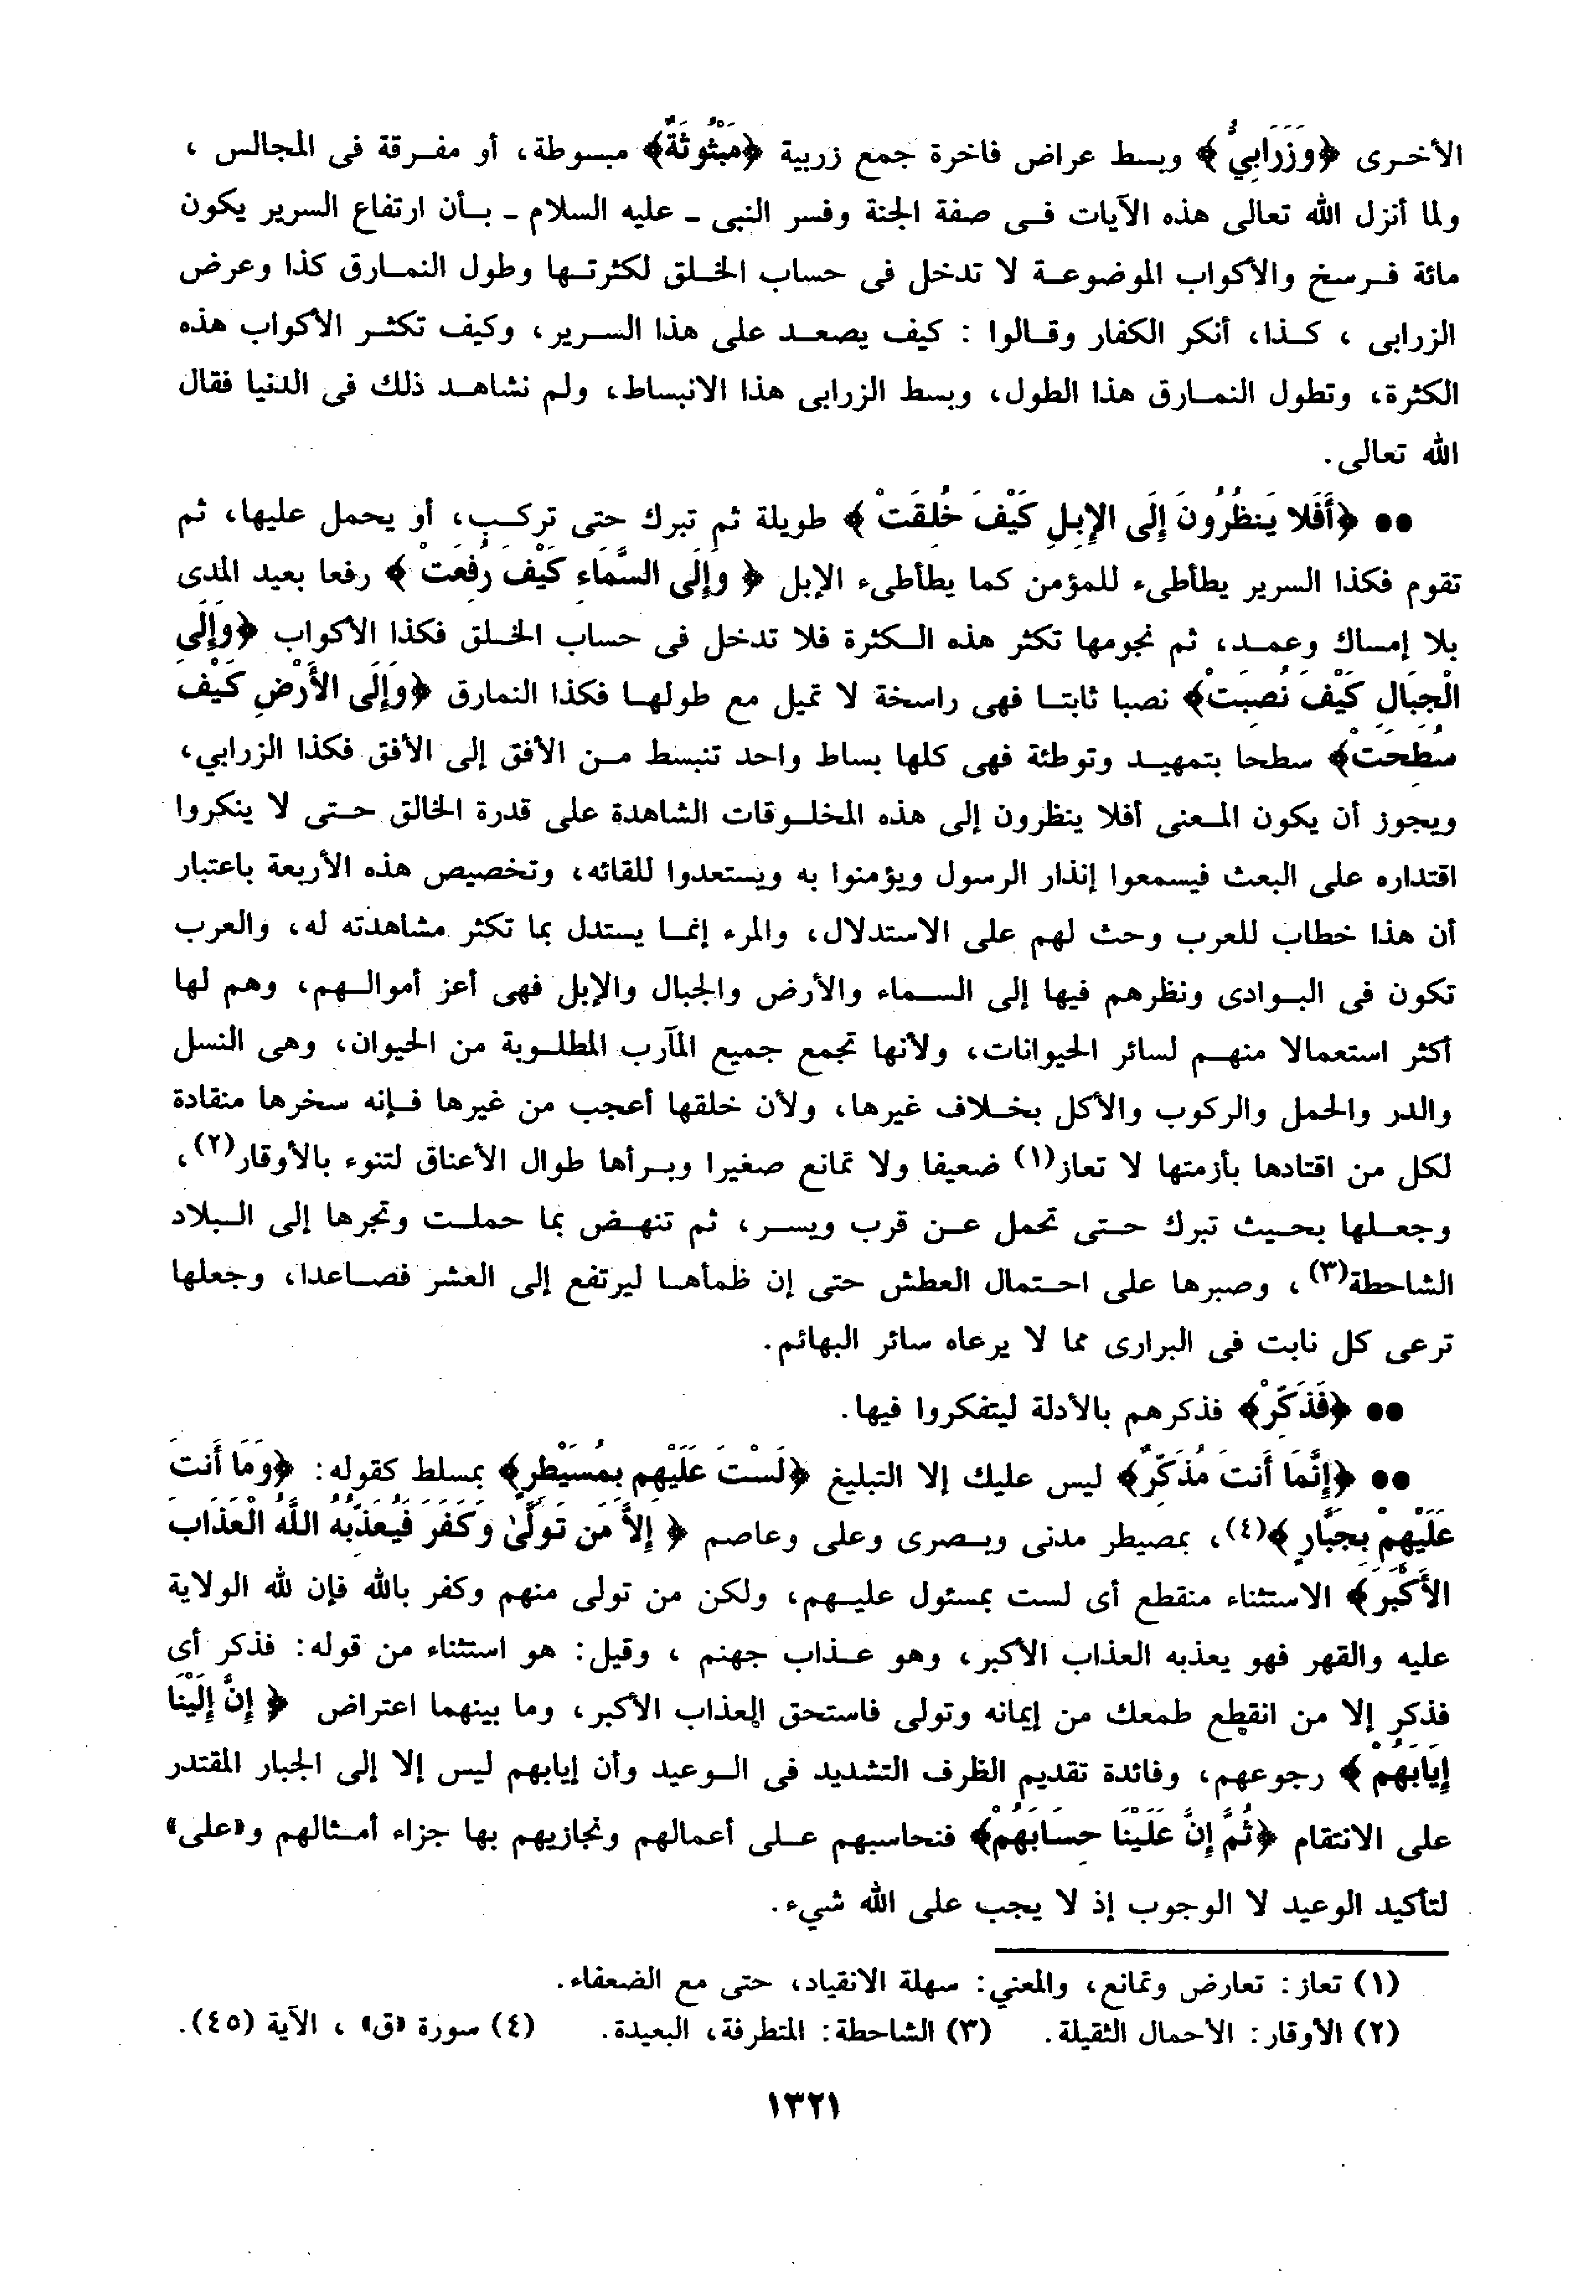 الأخرى ﴿وَزَرَابِيُّ﴾ وبسط عراض فاخرة جمع زربية ﴿مَبْثُوثَةٌ﴾ مبسوطة، أو مفرقة فى المجالس ،
ولما أنزل الله تعالى هذه الآيات فى صفة الجنة وفسر النبى - عليه السلام - بأن ارتفاع السرير يكون
مائة فرسخ والأكواب الموضوعة لا تدخل فى حساب الخلق لكثرتها وطول النمارق كذا وعرض
الزرابى ، كذا، أنكر الكفار وقالوا : كيف يصعد على هذا السرير، وكيف تكثر الأكواب هذه
الكثرة، وتطول النمارق هذا الطول، وبسط الزرابى هذا الانبساط، ولم نشاهد ذلك فى الدنيا فقال
الله تعالى.
●● ﴿أَفَلا يَنظُرُونَ إِلَى الإِبِلِ كَيْفَ خُلِقَتْ ﴾ طويلة ثم تبرك حتى تركب، أو يحمل عليها، ثم
تقوم فكذا السرير يطأطىء للمؤمن كما يطأطىء الإبل ﴿ وَإِلَى السَّمَاءِ كَيْفَ رُفِعَتْ ﴾ رفعا بعيد المدى
بلا إمساك وعمد، ثم نجومها تكثر هذه الكثرة فلا تدخل فى حساب الخلق فكذا الأكواب ﴿وَإِلَى
الْجِبَالِ كَيْفَ نُصِبَتْ﴾ نصبا ثابتا فهى راسخة لا تميل مع طولها فكذا النمارق ﴿وَإِلَى الأَرْضِ كَيْفَ
سُطِحَتْ﴾ سطحا بتمهيد وتوطئة فهى كلها بساط واحد تنبسط من الأفق إلى الأفق فكذا الزرابي،
ويجوز أن يكون المعنى أفلا ينظرون إلى هذه المخلوقات الشاهدة على قدرة الخالق حتى لا ينكروا
اقتداره على البعث فيسمعوا إنذار الرسول ويؤمنوا به ويستعدوا للقائه، وتخصيص هذه الأربعة باعتبار
أن هذا خطاب للعرب وحث لهم على الاستدلال، والمرء إنما يستدل بما تكثر مشاهدته له، والعرب
تكون فى البوادى ونظرهم فيها إلى السماء والأرض والجبال والإبل فهى أعز أموالهم، وهم لها
أكثر استعمالا منهم لسائر الحيوانات، ولأنها تجمع جميع المآرب المطلوبة من الحيوان، وهى النسل
والدر والحمل والركوب والأكل بخلاف غيرها، ولأن خلقها أعجب من غيرها فإنه سخرها منقادة
لكل من اقتادها بأزمتها لا تعاز(١) ضعيفا ولا تمانع صغيرا وبرأها طوال الأعناق لتنوء بالأوقار(٢)،
وجعلها بحيث تبرك حتى تحمل عن قرب ويسر، ثم تنهض بما حملت وتجرها إلى البلاد
الشاحطة(٣)، وصبرها على احتمال العطش حتى إن ظمأها ليرتفع إلى العشر فصاعدا، وجعلها
ترعى كل نابت فى البرارى مما لا يرعاه سائر البهائم.
●● ﴿فَذَكِّرْ﴾ فذكرهم بالأدلة ليتفكروا فيها.
●● ﴿إِنَّمَا أَنتَ مُذَكِّرٌ﴾ ليس عليك إلا التبليغ ﴿لَسْتَ عَلَيْهِم بِمُسَيْطِرٍ﴾ بمسلط كقوله: ﴿وَمَا أَنتَ
عَلَيْهِمْ بِجَبَّارٍ ﴾(٤)، بمصيطر مدنى وبصرى وعلى وعاصم ﴿ إِلاَّ مَن تَوَلَّىٰ وَكَفَرَ فَيُعَذِّبُهُ اللَّهُ الْعَذَابَ
الأَكْبَرَ﴾ الاستثناء منقطع أى لست بمسئول عليهم، ولكن من تولى منهم وكفر بالله فإن لله الولاية
عليه والقهر فهو يعذبه العذاب الأكبر، وهو عذاب جهنم ، وقيل: هو استثناء من قوله: فذكر أى
فذكر إلا من انقطع طمعك من إيمانه وتولى فاستحق العذاب الأكبر، وما بينهما اعتراض ﴿ إِنَّ إِلَيْنَا
إِيَابَهُمْ ﴾ رجوعهم، وفائدة تقديم الظرف التشديد فى الوعيد وأن إيابهم ليس إلا إلى الجبار المقتدر
على الانتقام ﴿ثُمَّ إِنَّ عَلَيْنَا حِسَابَهُمْ﴾ فنحاسبهم على أعمالهم ونجازيهم بها جزاء أمثالهم و«على»
لتأكيد الوعيد لا الوجوب إذ لا يجب على الله شيء.
(١) تعاز: تعارض وتمانع، والمعني: سهلة الانقياد، حتى مع الضعفاء.
(٢) الأوقار: الأحمال الثقيلة. (٣) الشاحطة: المتطرفة، البعيدة. (٤) سورة «ق» ، الآية (٤٥).
١٣٢١